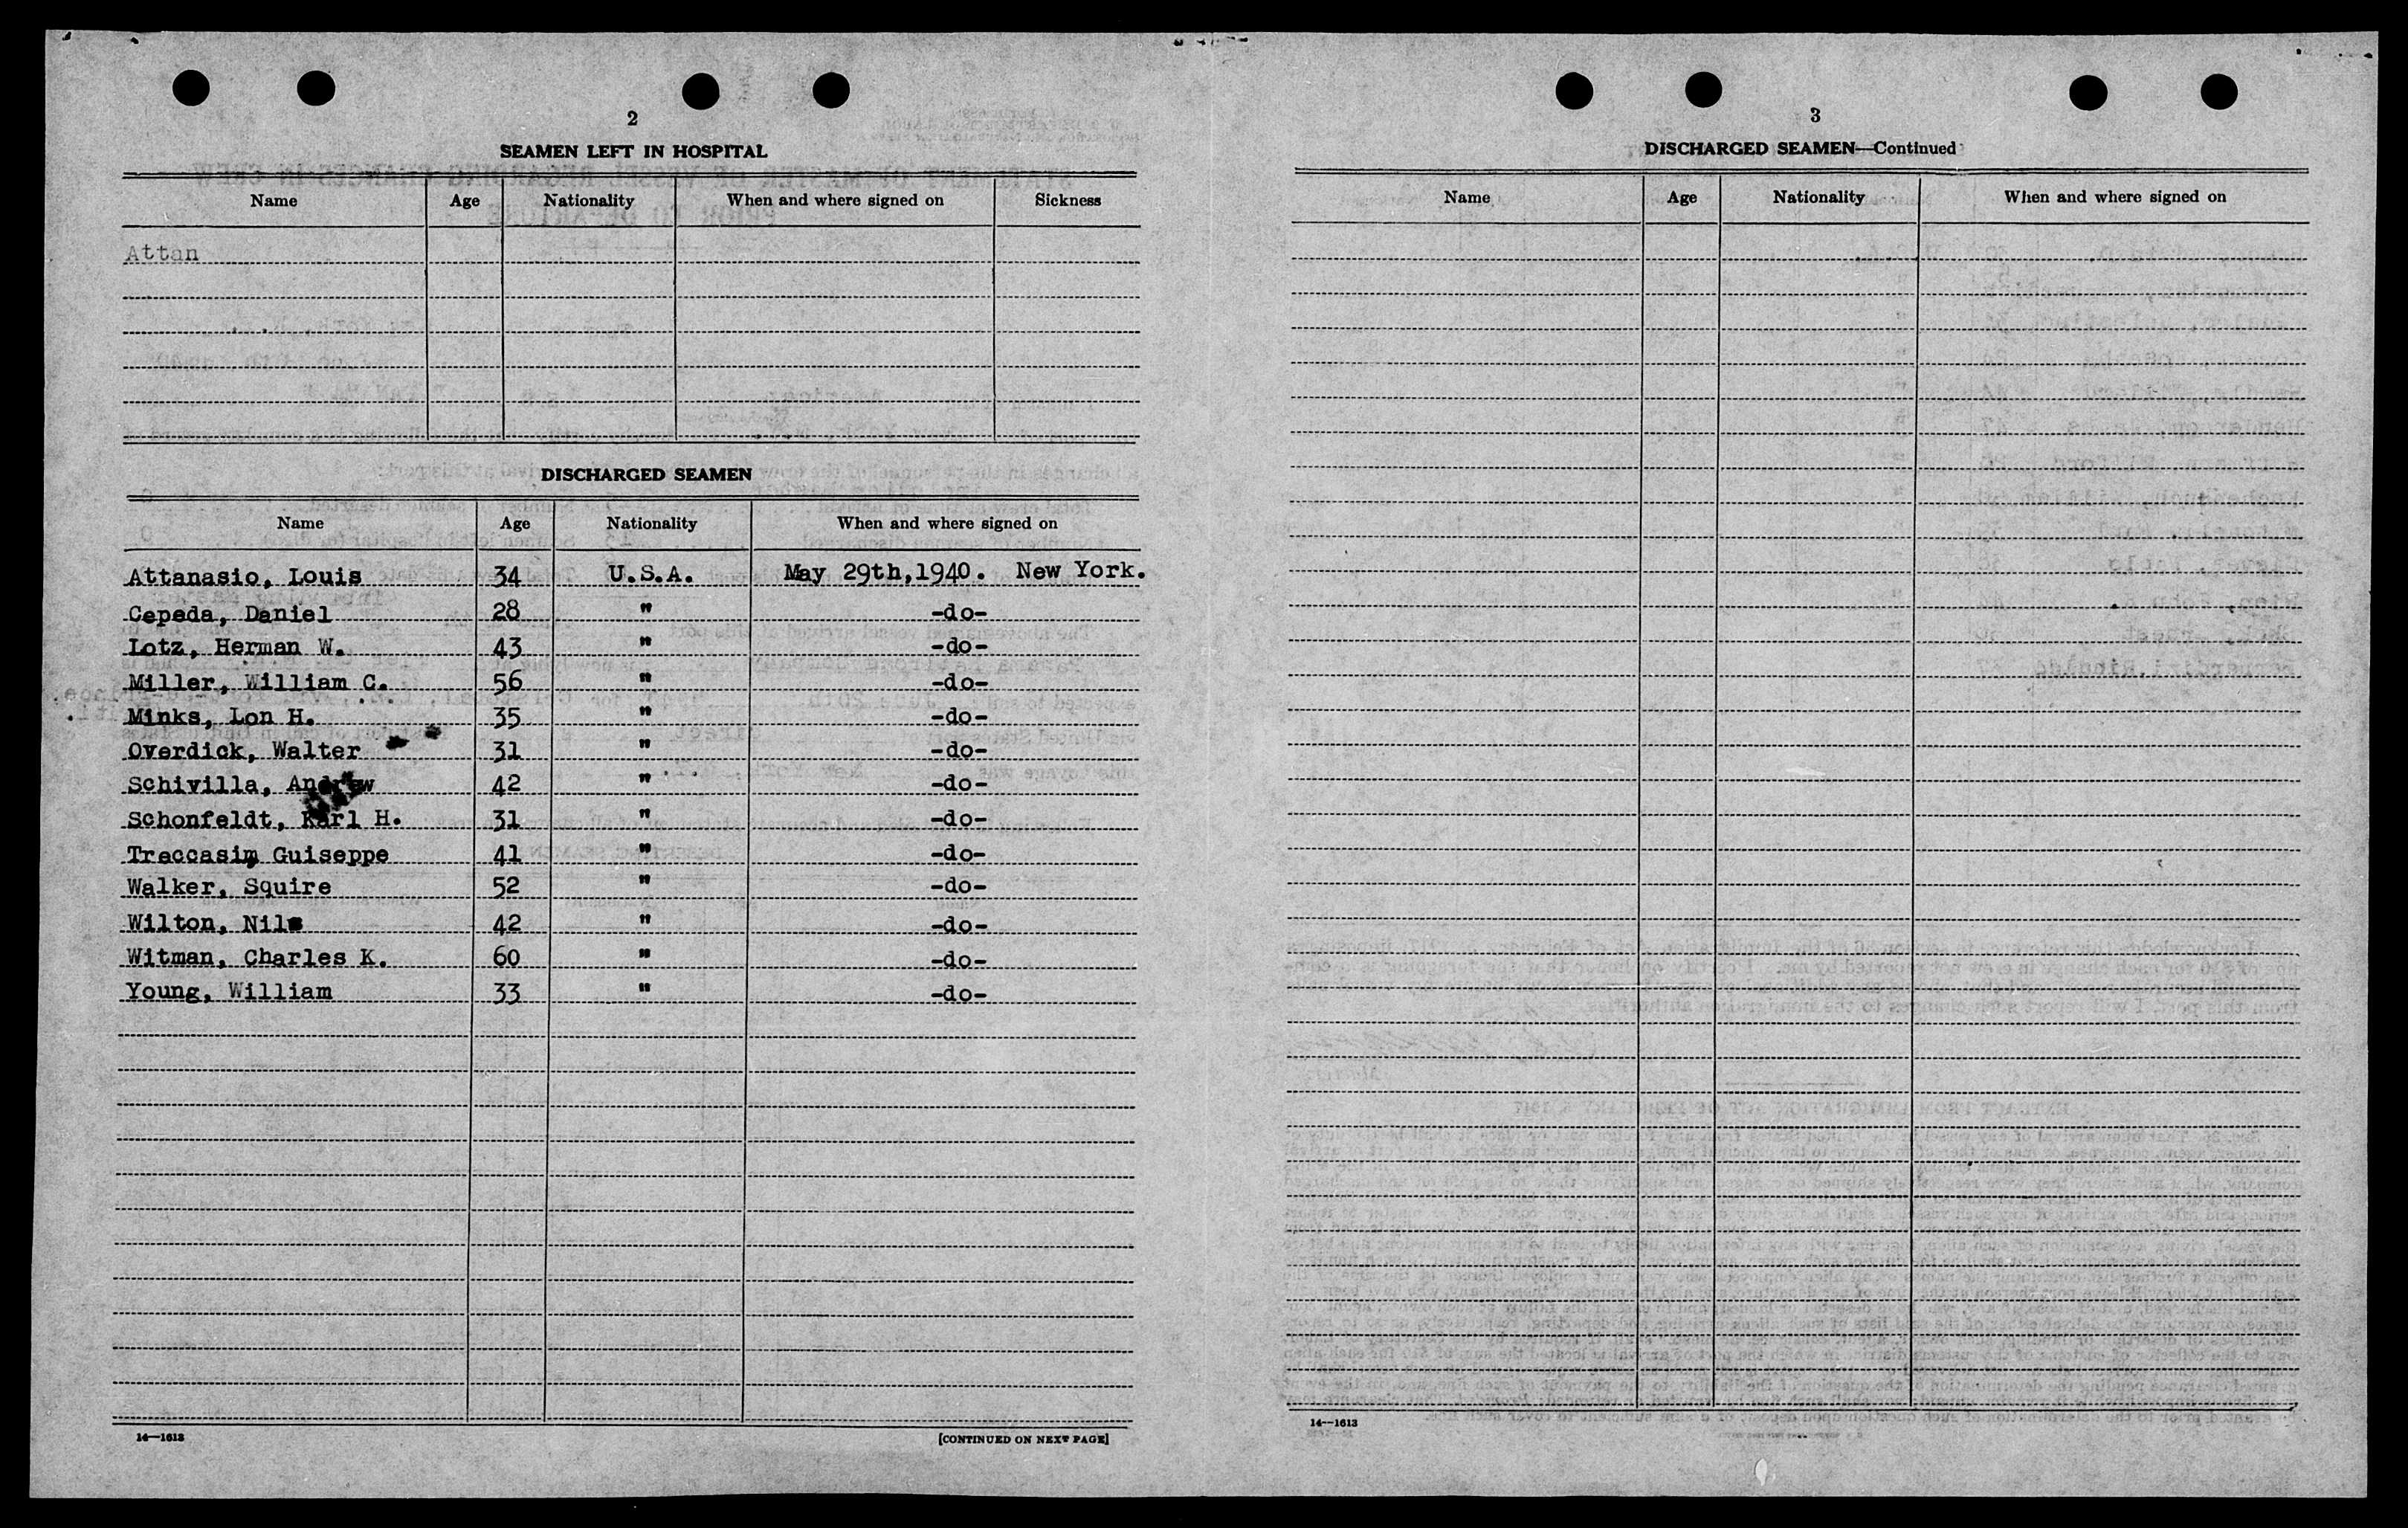 2
SEAMEN LEFT IN HOSPITAL
Name Age Nationality When and where signed on Sickness
Attan
DISCHARGED SEAMEN
Name Age Nationality When and where signed on
Attanasio, Louis 34 U.S.A. May 29th,1940. New York.
Cepeda, Daniel 28 " -do-
Lotz, Herman W. 43 " -do-
Miller, William C. 56 " -do-
Minks, Lon H. 35 " -do-
Overdick, Walter 31 " -do-
Schivilla, Andrew 42 " -do-
Schonfeldt, Karl H. 31 " -do-
Treccasi, Guiseppe 41 " -do-
Walker, Squire 52 " -do-
Wilton, Nils 42 " -do-
Witman, Charles K. 60 " -do-
Young, William 33 " -do-
14—1613
[CONTINUED ON NEXT PAGE]
3
DISCHARGED SEAMEN—Continued
Name Age Nationality When and where signed on
14—1613